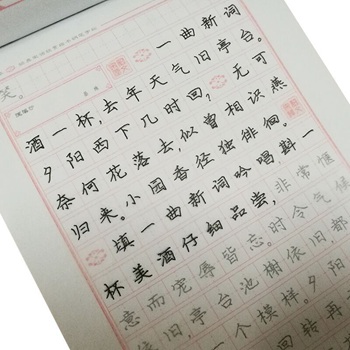 一曲新词
酒一杯,去年天气旧亭台。
夕阳西下几时回,无可
奈何花落去,似曾相识燕
归来。小园香径独徘徊。
填一曲新词吟唱,斟一
杯美酒仔细品尝,非常惬
意而宠辱皆忘。时令气候
依旧,亭台池榭依旧,都
一个模样。夕阳
转再